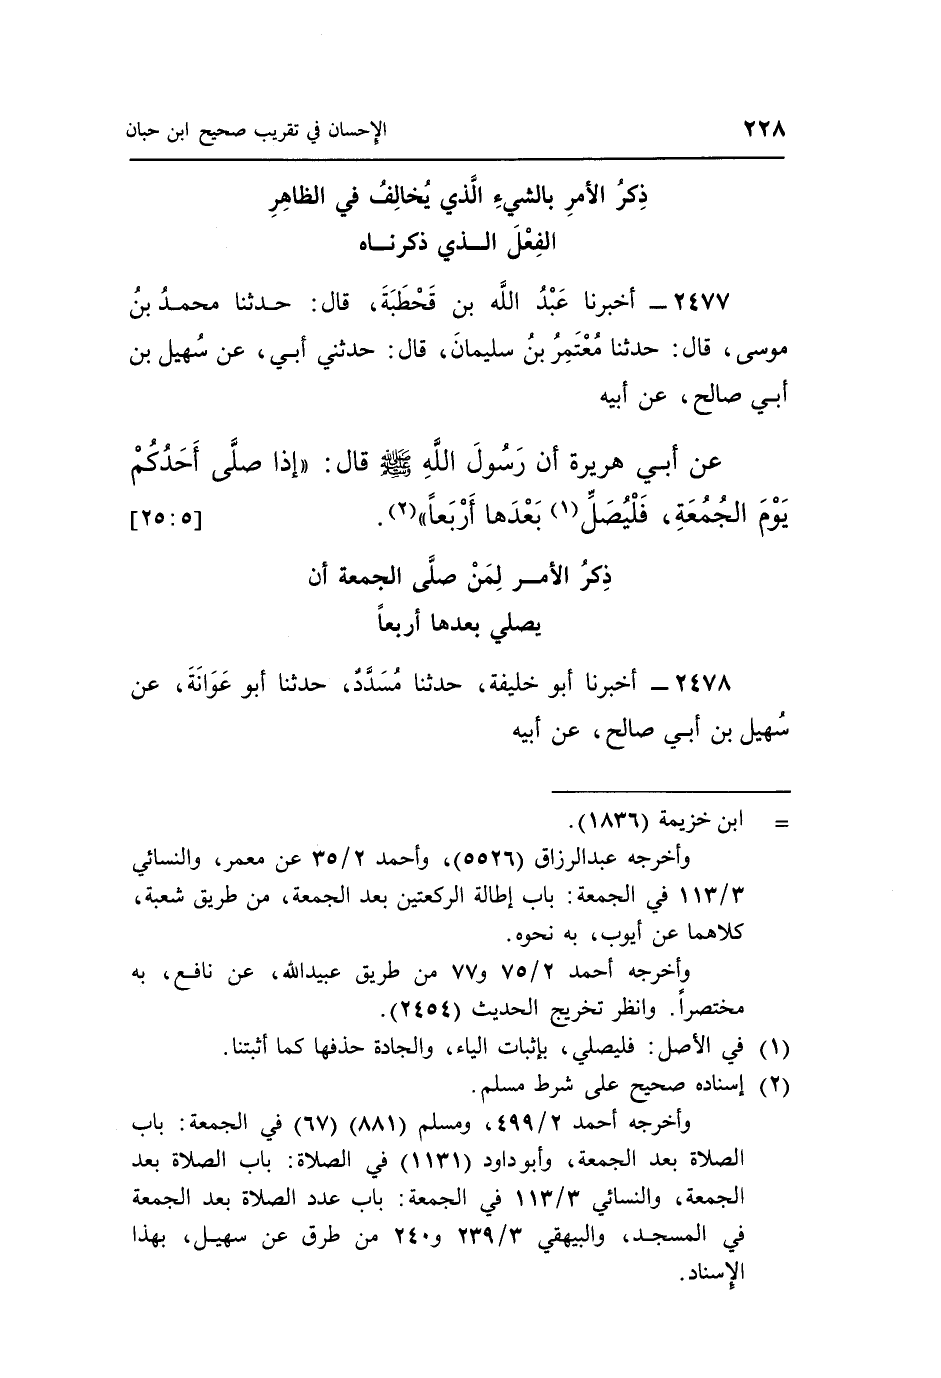 ٢٢٨ الإحسان في تقريب صحيح ابن حبان
ذِكرُ الأمرِ بالشيءِ الَّذي يُخالِفُ في الظاهِرِ
الفِعْلَ الـذي ذكرنـاه
٢٤٧٧ ـ أخبرنا عَبْدُ اللَّه بن قَحْطَبَةَ، قال: حـدثنا محمـدُ بنُ
موسى، قال: حدثنا مُعْتَمِرُ بنُ سليمانَ، قال: حدثني أبـي، عن سُهيل بن
أبـي صالح، عن أبيه
عن أبـي هريرة أن رَسُولَ اللَّهِ ﷺ قال: «إذا صلَّى أَحَدُكُمْ
يَوْمَ الجُمُعَةِ، فَلْيُصَلِّ(١) بَعْدَها أَرْبَعاً»(٢). [٢٥:٥]
ذِكرُ الأمـر لِمَنْ صلَّى الجمعة أن
يصلي بعدها أربعاً
٢٤٧٨ ـ أخبرنا أبو خليفة، حدثنا مُسَدَّدٌ، حدثنا أبو عَوَانَةَ، عن
سُهيل بن أبـي صالح، عن أبيه
= ابن خزيمة (١٨٣٦).
وأخرجه عبدالرزاق (٥٥٢٦)، وأحمد ٣٥/٢ عن معمر، والنسائي
١١٣/٣ في الجمعة: باب إطالة الركعتين بعد الجمعة، من طريق شعبة،
كلاهما عن أيوب، به نحوه.
وأخرجه أحمد ٧٥/٢ و٧٧ من طريق عبيدالله، عن نافع، به
مختصراً. وانظر تخريج الحديث (٢٤٥٤).
(١) في الأصل: فليصلي، بإثبات الياء، والجادة حذفها كما أثبتنا.
(٢) إسناده صحيح على شرط مسلم.
وأخرجه أحمد ٤٩٩/٢، ومسلم (٨٨١) (٦٧) في الجمعة: باب
الصلاة بعد الجمعة، وأبو داود (١١٣١) في الصلاة: باب الصلاة بعد
الجمعة، والنسائي ١١٣/٣ في الجمعة: باب عدد الصلاة بعد الجمعة
في المسجـد، والبيهقي ٢٣٩/٣ و٢٤٠ من طرق عن سهيـل، بهذا
الإسناد.